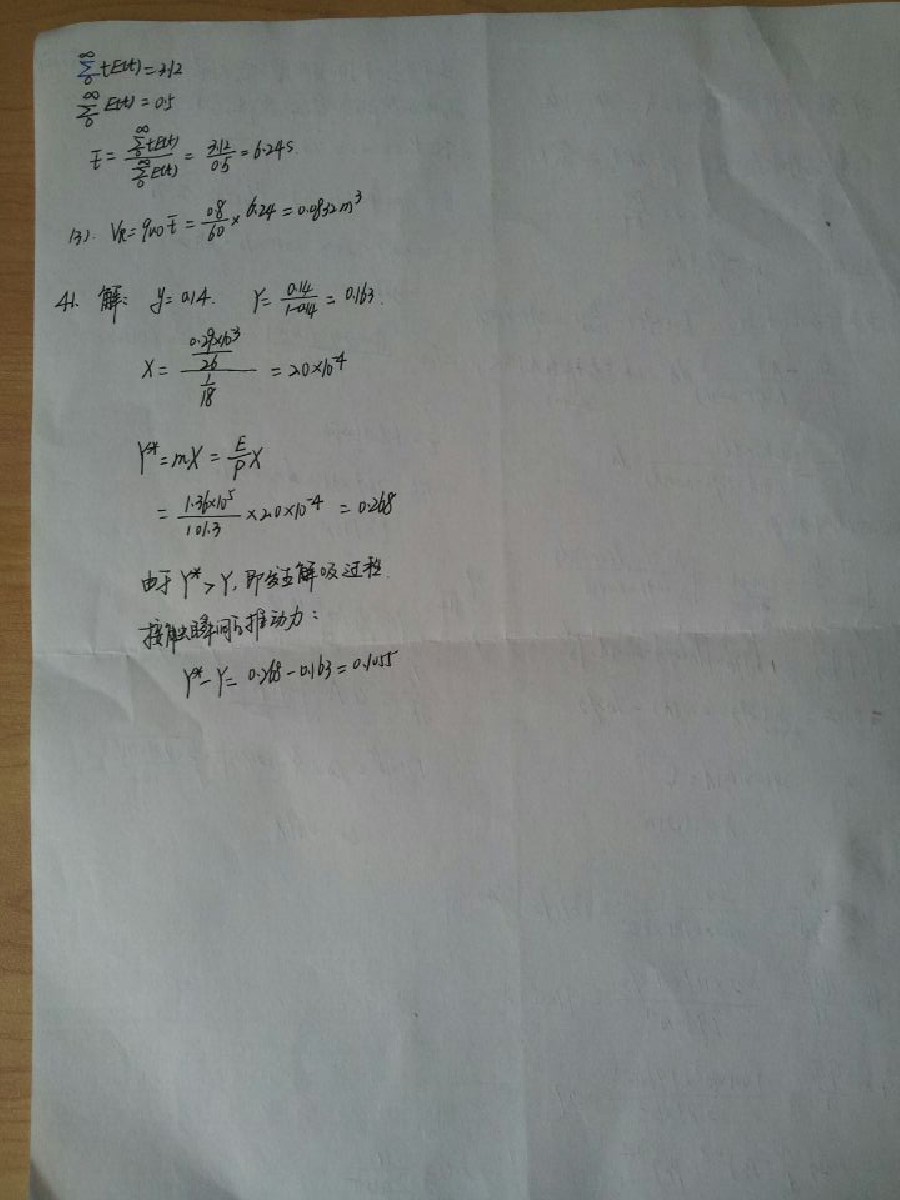 ∑₀^∞ tE(t) = 3.12
∑₀^∞ E(t) = 0.5
t̄ = ∑₀^∞ tE(t) / ∑₀^∞ E(t) = 3.12/0.5 = 6.24s.
(3). V_R = q_{v0} t̄ = 0.8/60 × 6.24 = 0.0832m³
41. 解: y = 0.14. Y = 0.14/(1-0.14) = 0.163.
X = (0.29×10⁻³/26)/(1/18) = 2.0×10⁻⁴
Y* = mX = E/P X
= 1.36×10⁵/101.3 × 2.0×10⁻⁴ = 0.268
由于 Y* > Y, 即发生解吸过程.
接触瞬间的推动力:
Y* - Y = 0.268 - 0.163 = 0.1055